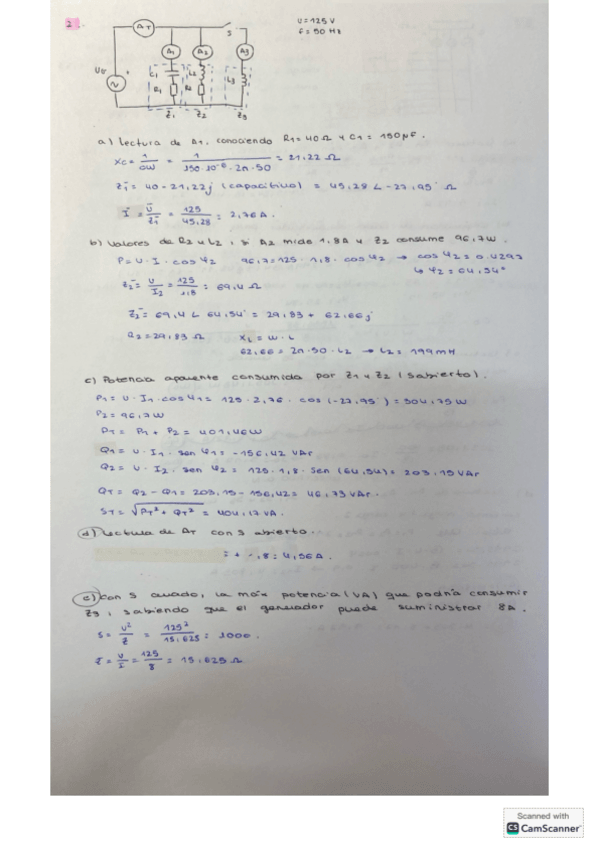 2.
U = 125 V
f = 50 Hz
AT
S
A1
A2
A3
C1
L2
L3
R1
R2
Z̄1
Z2
Z3
a) Lectura de A1, conociendo R1 = 40 Ω y C1 = 150 μF.
Xc = 1/cω = 1/150·10⁻⁶·2π·50 = 21,22 Ω
Z̄1 = 40 - 21,22j (capacitivo) = 45,28 ∠ -27,95° Ω
Ī = Ū/Z̄1 = 125/45,28 = 2,76 A.
b) Valores de R2 y L2, si A2 mide 1,8A y Z2 consume 96,7W.
P = U · I · cos φ2 96,7 = 125 · 1,8 · cos φ2 → cos φ2 = 0.4297
↳ φ2 = 64,54°
Z̄2 = U/I2 = 125/1,8 = 69,4 Ω
Z̄2 = 69,4 ∠ 64,54° = 29,83 + 62,66j
R2 = 29,83 Ω XL = ω · L
62,66 = 2π · 50 · L2 → L2 = 199 mH
c) Potencia aparente consumida por Z1 y Z2 (S abierto).
P1 = U · I1 · cos φ1 = 125 · 2,76 · cos (-27,95°) = 304,75W
P2 = 96,7W
PT = P1 + P2 = 401,46W
Q1 = U · I1 · sen φ1 = -156,42 VAr
Q2 = U · I2 · sen φ2 = 125 · 1,8 · sen (64,54) = 203,15 VAr
QT = Q2 - Q1 = 203,15 - 156,42 = 46,73 VAr.
ST = √PT² + QT² = 404,17 VA.
d) Lectura de AT con S abierto.
= + - ,8 = 4,56A.
e) Con S cerrado, la máx potencia (VA) que podría consumir
Z3, sabiendo que el generador puede suministrar 8A.
S = U²/Z = 125²/15,625 = 1000.
Z = U/I = 125/8 = 15,625 Ω
Scanned with
CS CamScanner